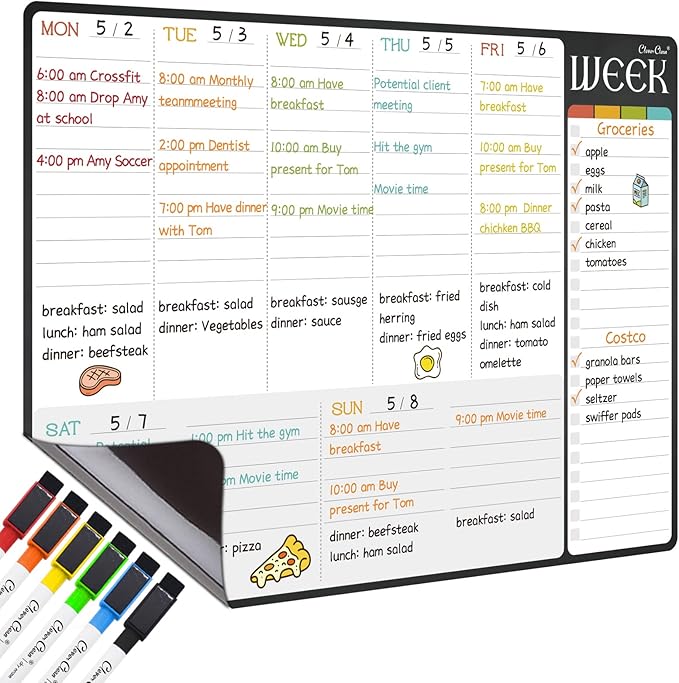 MON 5/2
6:00 am Crossfit
8:00 am Drop Amy
at school
4:00 pm Amy Soccer
breakfast: salad
lunch: ham salad
dinner: beefsteak
TUE 5/3
8:00 am Monthly
teammeeting
2:00 pm Dentist
appointment
7:00 pm Have dinner
with Tom
breakfast: salad
dinner: Vegetables
WED 5/4
8:00 am Have
breakfast
10:00 am Buy
present for Tom
9:00 pm Movie time
breakfast: sausge
dinner: sauce
THU 5/5
Potential client
meeting
Hit the gym
Movie time
breakfast: fried
herring
dinner: fried eggs
FRI 5/6
7:00 am Have
breakfast
10:00 am Buy
present for Tom
8:00 pm Dinner
chichken BBQ
breakfast: cold
dish
lunch: ham salad
dinner: tomato
omelette
Clever Clean
WEEK
Groceries
apple
eggs
milk
pasta
cereal
chicken
tomatoes
Costco
granola bars
paper towels
seltzer
swiffer pads
SAT 5/7
Potential
:00 pm Hit the gym
pm Movie time
dinner: pizza
SUN 5/8
8:00 am Have
breakfast
10:00 am Buy
present for Tom
9:00 pm Movie time
dinner: beefsteak
lunch: ham salad
breakfast: salad
Clever Clean
Clever Clean
Clever Clean
Clever Clean
Clever Clean
Clever Clean